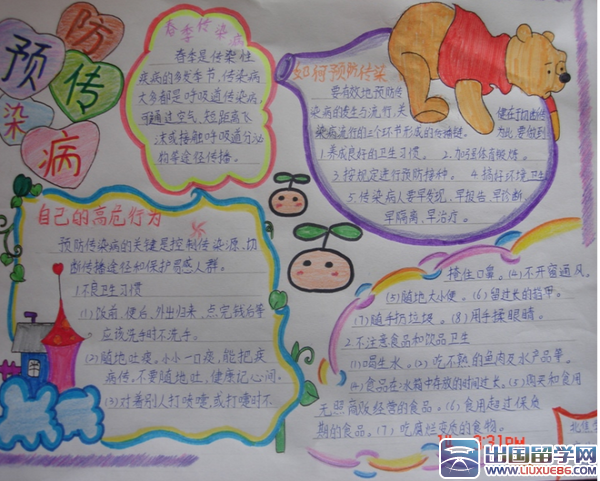 预防传染病
春季传染病
春季是传染性
疾病的多发季节,传染病
大多都是呼吸道传染病,
可通过空气,短距离飞
沫或接触呼吸道分泌
物等途径传播。
如何预防传染
要有效地预防传
染病的发生与流行,关
键在于由传
染病流行的三个环节形成的传播链。
为此要做到
1.养成良好的卫生习惯。2.加强体育锻炼。
3.按规定进行预防接种。4.搞好环境卫生
5.传染病人要早发现,早报告,早诊断,
早隔离,早治疗。
自己的高危行为
预防传染病的关键是控制传染源、切
断传播途径和保护易感人群。
1不良卫生习惯
(1)饭前,便后,外出归来,点完钱后等
应该洗手时不洗手。
(2)随地吐痰。小小一口痰,能把疾
病传。不要随地吐,健康记心间。
(3)对着别人打喷嚏,或打嚏时不
掩住口鼻。(4)不开窗通风。
(5)随地大小便。(6)留过长的指甲。
(7)随手扔垃圾。(8)用手揉眼睛。
2.不注意食品和饮品卫生
(1)喝生水。(2)吃不熟的鱼肉及水产品等。
(4)食品在冰箱中存放的时间过长。(5)购买和食用
无照商贩经营的食品。(6)食用超过保质
期的食品。(7)吃腐烂变质的食物。
31PM
出国留学网
WWW.LIUXUE86.COM